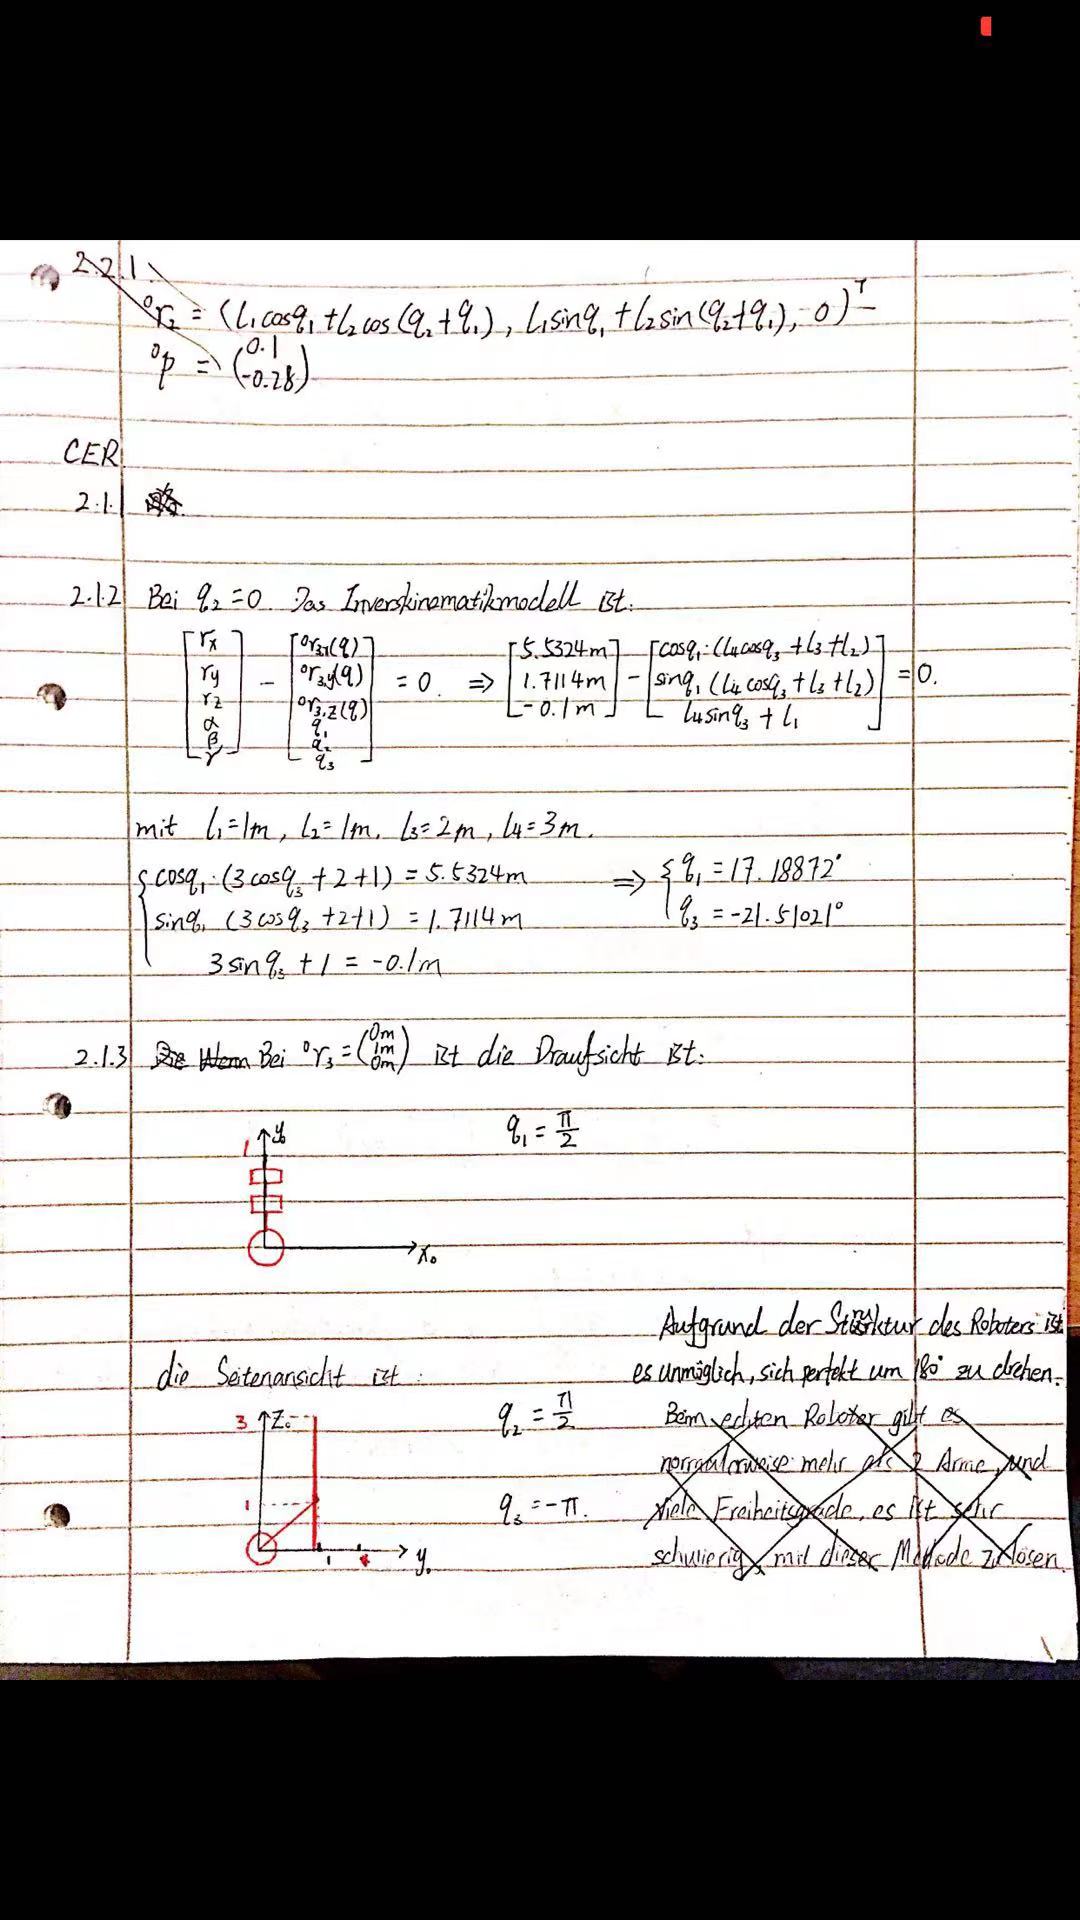 2.2.1
⁰r₂ = (l₁cosq₁ + l₂cos(q₂+q₁), l₁sinq₁ + l₂sin(q₂+q₁), 0)ᵀ
⁰p = (0.1
-0.28)
CER
2.1.1
2.1.2 Bei q₂=0. Das Inverskinematikmodell ist:
[rx ry rz α β γ] - [⁰r₃,x(q) ⁰r₃,y(q) ⁰r₃,z(q) q₁ q₂ q₃] = 0 ⇒ [5.5324m 1.7114m -0.1m] - [cosq₁·(l₄cosq₃+l₃+l₂) sinq₁(l₄cosq₃+l₃+l₂) l₄sinq₃+l₁] = 0.
mit l₁=1m, l₂=1m, l₃=2m, l₄=3m.
{cosq₁·(3cosq₃+2+1) = 5.5324m ⇒ {q₁ = 17.18872°
sinq₁(3cosq₃+2+1) = 1.7114m q₃ = -21.51021°
3sinq₃+1 = -0.1m
2.1.3 Die Wenn Bei ⁰r₃ = (0m 1m 0m) ist die Draufsicht ist:
y₀
1
q₁ = π/2
x₀
Aufgrund der Struktur des Roboters ist
die Seitenansicht ist: es unmöglich, sich perfekt um 180° zu drehen.
3 Z₀ q₂ = π/2 Beim echten Roboter gibt es
normalerweise mehr als 2 Arme, und
1 q₃ = -π. viele Freiheitsgrade, es ist sehr
1 y₀ schwierig, mit dieser Methode zu lösen.